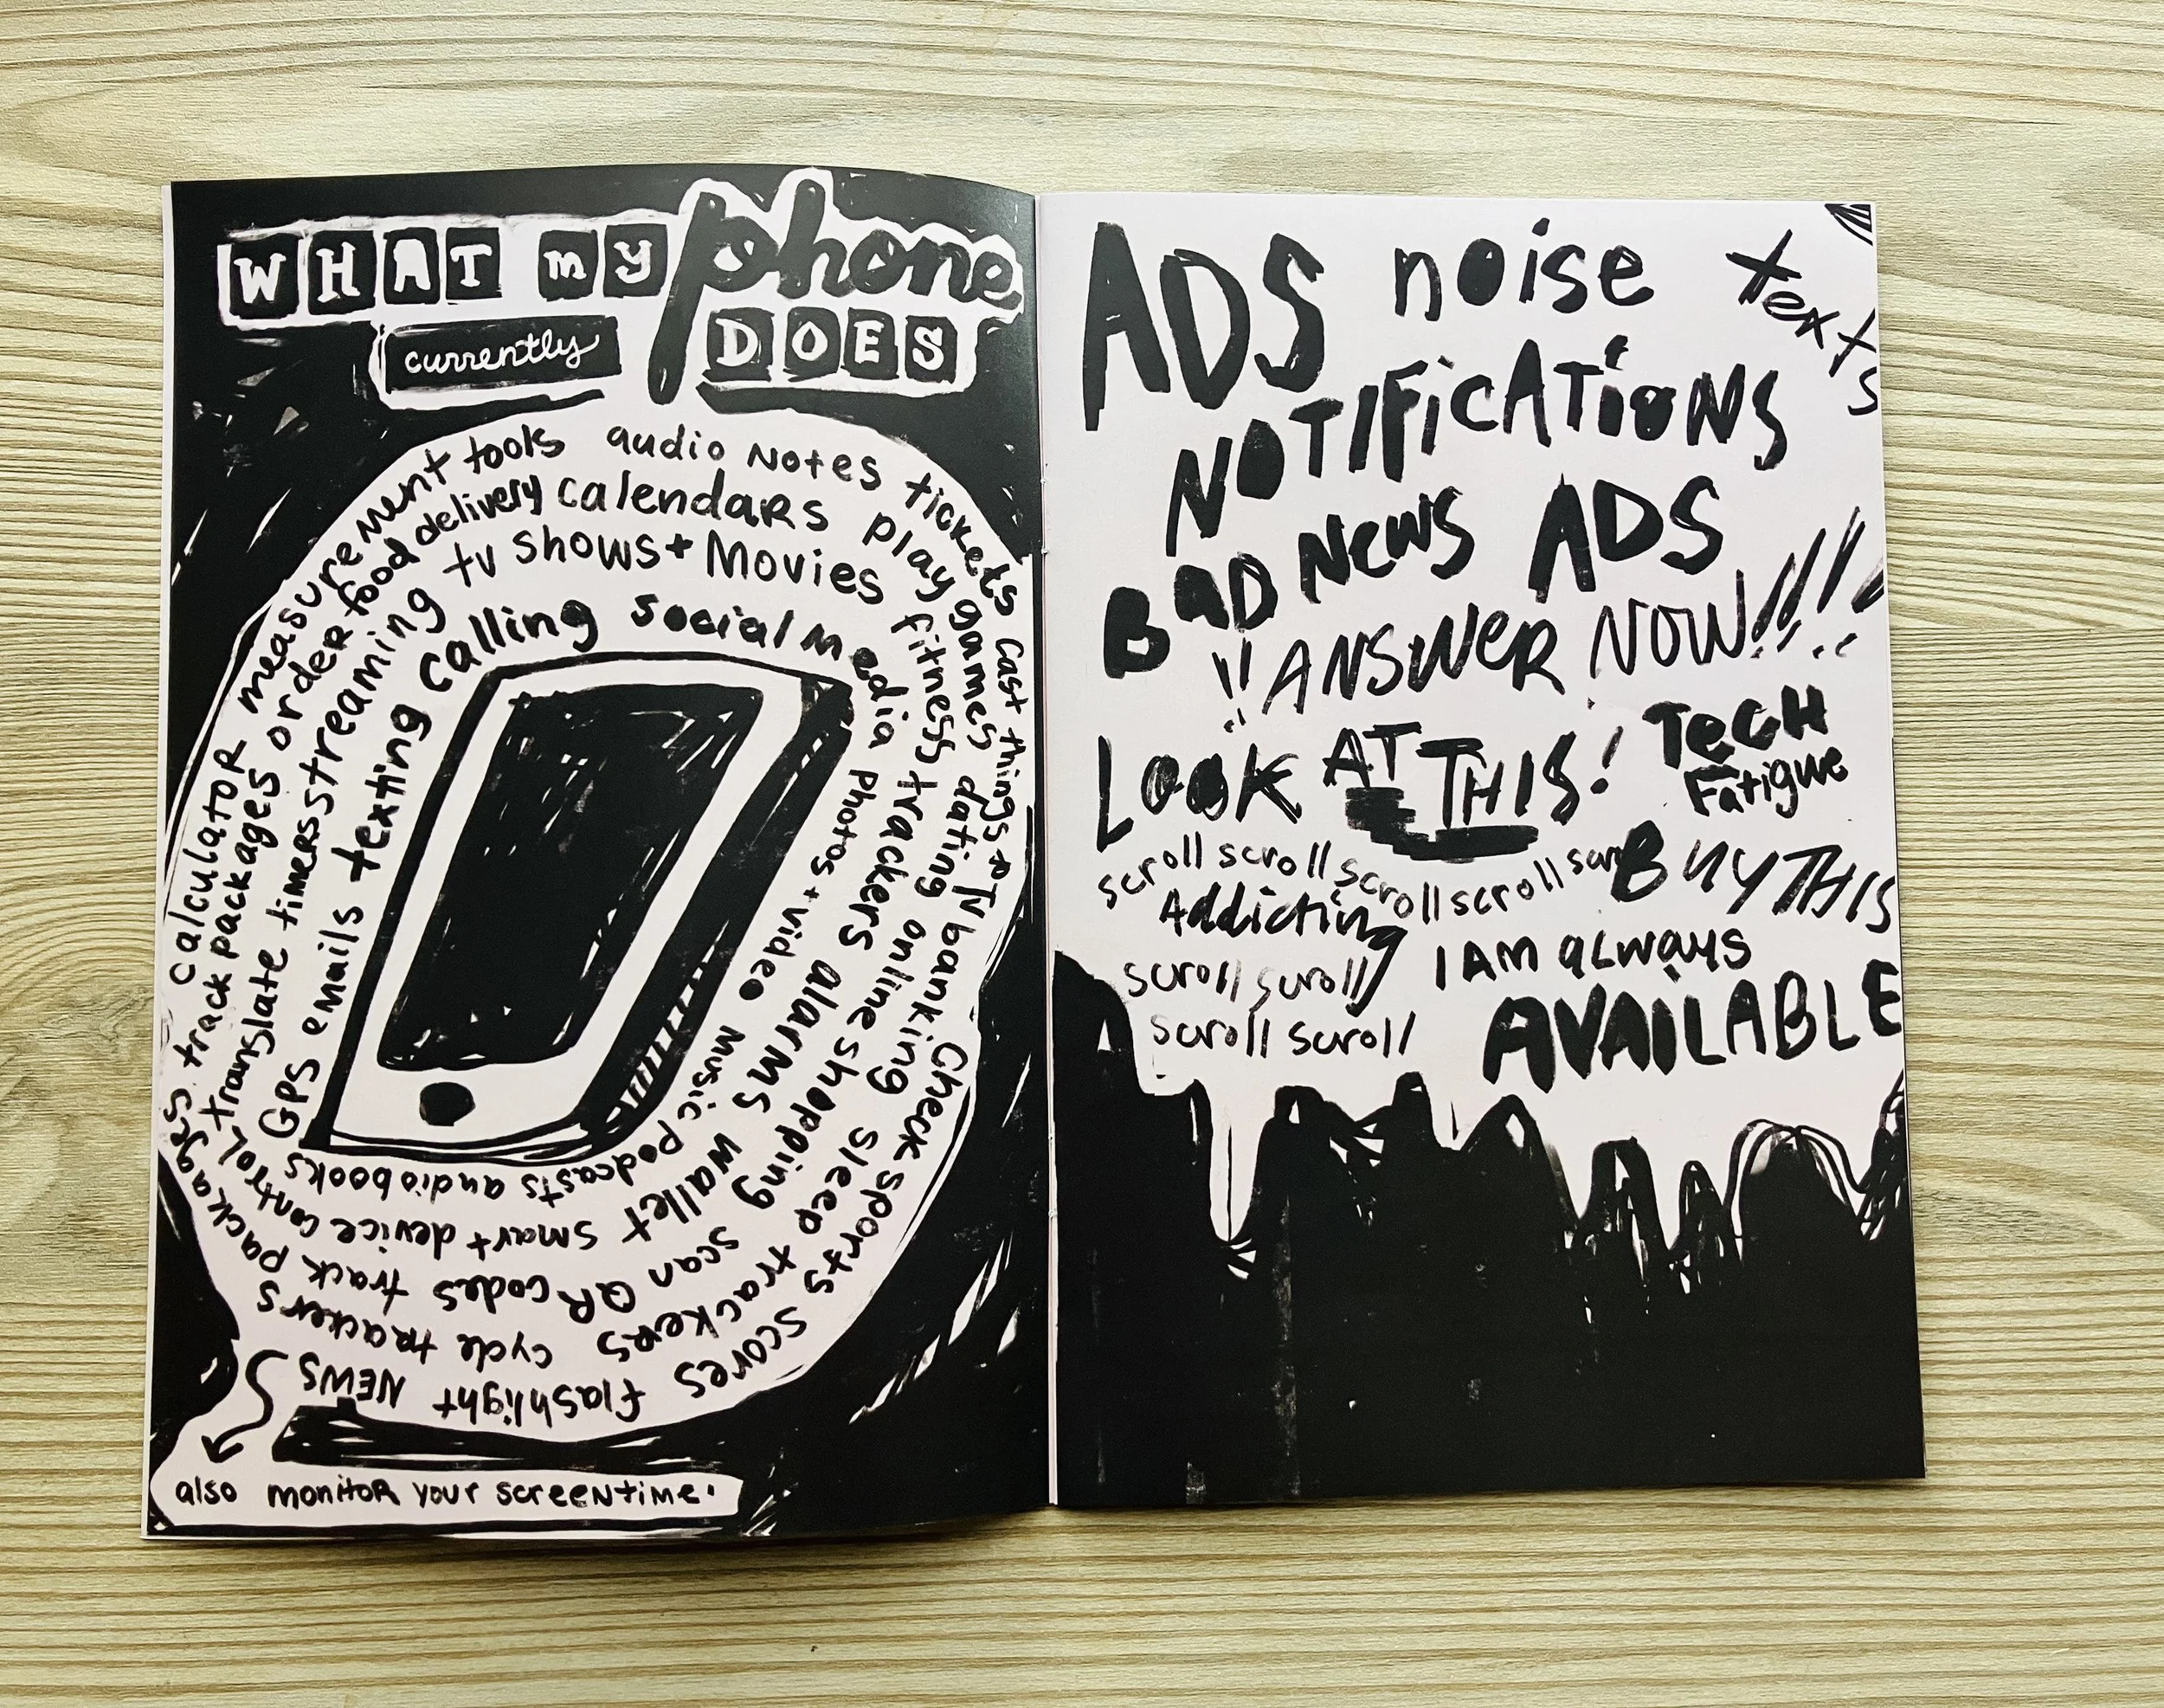 WHAT my phone
currently DOES
calculator measurement tools audio Notes tickets cast things → TV banking check sports scores flashlight NEWS
track packages order food delivery calendars play games dating online shopping sleep trackers cycle trackers
translate timers streaming tv shows + Movies fitness trackers alarms wallet scan QR codes track packages
GPS emails texting calling social media photos + video music podcasts audiobooks
smart device control
also monitor your screentime.
ADS noise texts
NOTIFiCATiONS
BaD News ADS
!! ANSWeR NOW!!!!
LOOK AT THIS! TeCH Fatigue
scroll scroll scroll scroll scroll BUY THIS
Addicting
scroll scroll I AM always
scroll scroll AVAILABLE